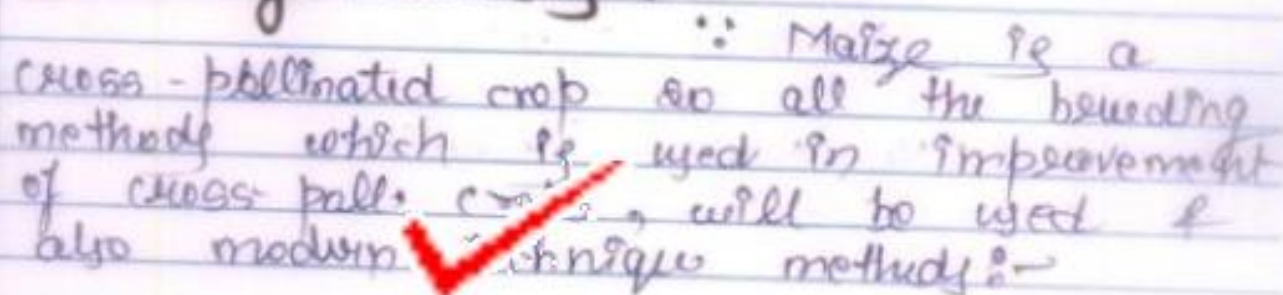 ∵ Maize is a
cross-pollinated crop so all the breeding
methods which is used in improvement
of cross-poll. , will be used &
also modern technique methods:-